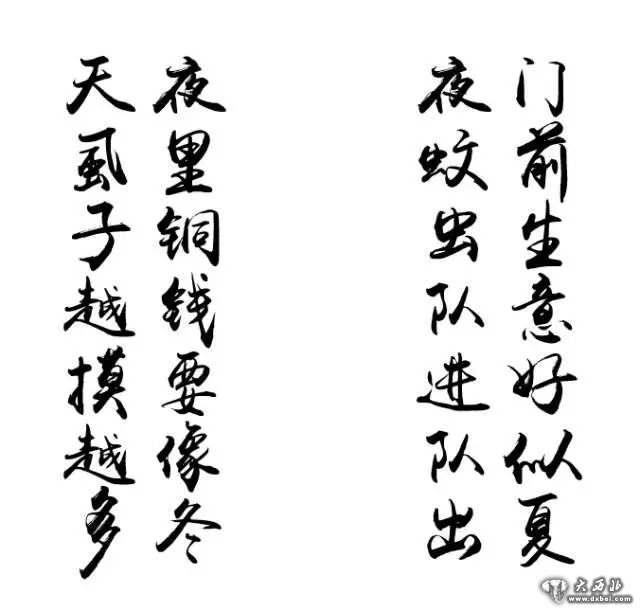 门前生意好似夏
夜蚊虫队进队出
夜里铜钱要像冬
天虱子越摸越多
大西北
www.dxbei.com